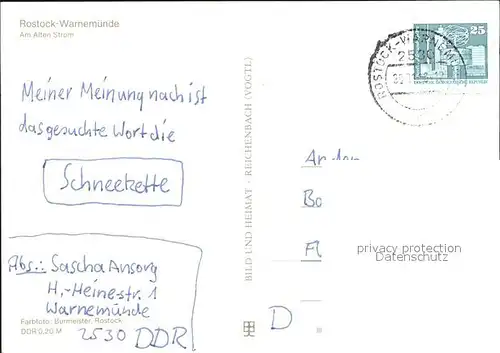 Rostock-Warnemünde
Am Alten Strom
Meiner Meinung nach ist
das gesuchte Wort die
Schneekette
Abs.: Sascha Ansorg
H.-Heinestr. 1
Warnemünde
2530 DDR
Farbfoto: Burmeister, Rostock
DDR 0,20 M
BILD UND HEIMAT · REICHENBACH (VOGTL)
ROSTOCK-WARNEM
2530
25
An
Bo
Fl
D
privacy protection
Datenschutz